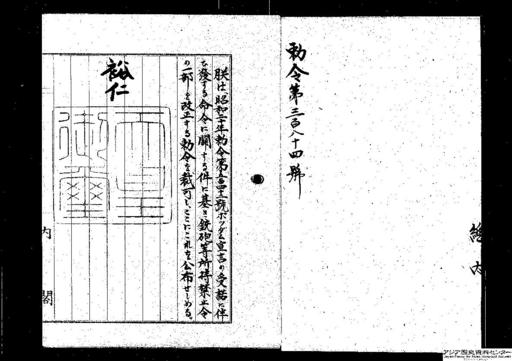 勅令第三百八十四號
朕は、昭和二十年勅令第五百四十二號ポツダム宣言の受諾に伴
ひ發する命令に關する件に基く銃砲等所持禁止令
の一部を改正する勅令を裁可し、ここにこれを公布せしめる。
裕仁
天皇御璽
内閣
アジア歴史資料センター